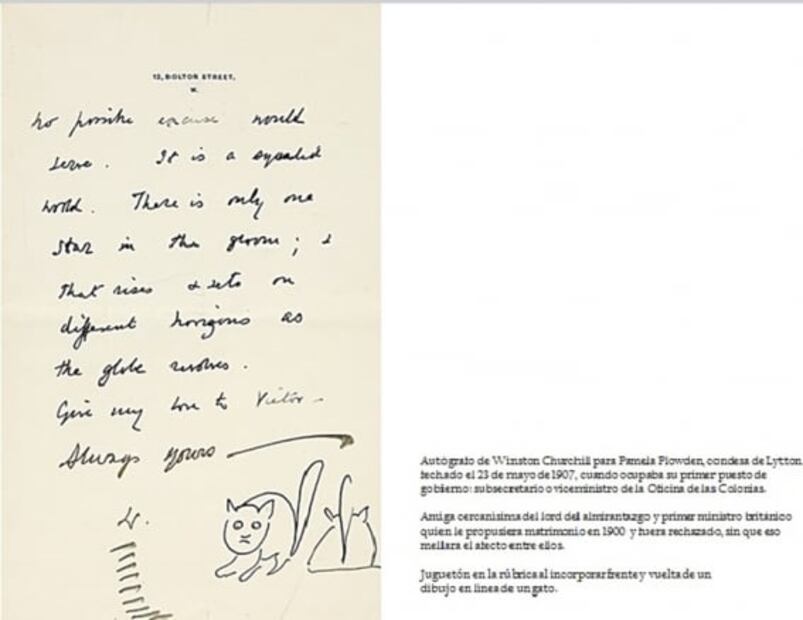 12, BOLTON STREET,
W.
no possible excuse would
serve. It is a squalid
world. There is only one
star in the gloom; &
that rises & sets on
different horizons as
the globe revolves.
Give my love to Victor.
Always yours
W.
Autógrafo de Winston Churchill para Pamela Plowden, condesa de Lytton
fechado el 23 de mayo de 1907, cuando ocupaba su primer puesto de
gobierno: subsecretario o viceministro de la Oficina de las Colonias.
Amiga cercanísima del lord del almirantazgo y primer ministro británico
quien le propusiera matrimonio en 1900 y fuera rechazado, sin que eso
mellara el afecto entre ellos.
Juguetón en la rúbrica al incorporar frente y vuelta de un
dibujo en línea de un gato.